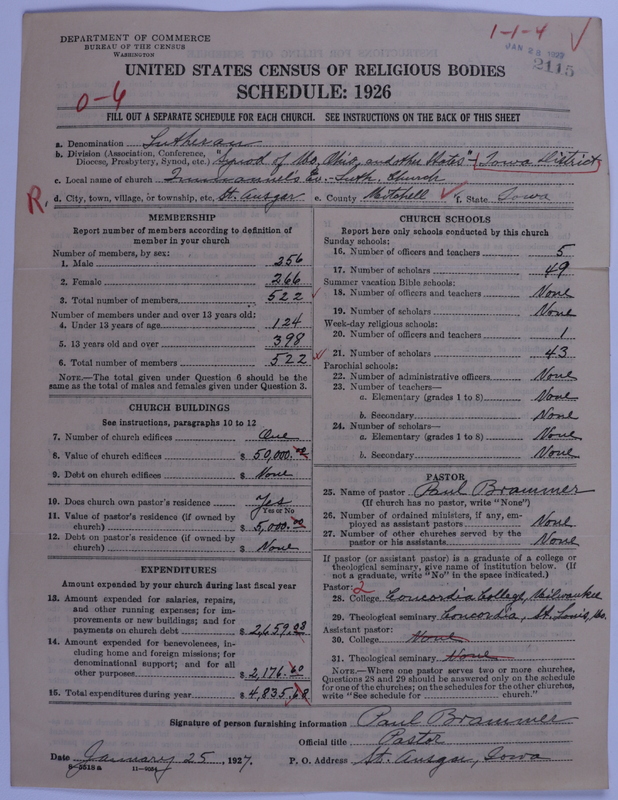 1-1-4 ✓
DEPARTMENT OF COMMERCE
BUREAU OF THE CENSUS
WASHINGTON
JAN 28 1927
2115
UNITED STATES CENSUS OF RELIGIOUS BODIES
SCHEDULE: 1926
0-6
FILL OUT A SEPARATE SCHEDULE FOR EACH CHURCH. SEE INSTRUCTIONS ON THE BACK OF THIS SHEET
a. Denomination Lutheran
b. Division (Association, Conference, Diocese, Presbytery, Synod, etc.) "Synod of Mo, Ohio, and other States" - Iowa District
c. Local name of church Immanuel's Ev. Luth. Church
R. d. City, town, village, or township, etc. St. Ansgar e. County Mitchell ✓ f. State Iowa
MEMBERSHIP
Report number of members according to definition of
member in your church
Number of members, by sex:
1. Male 256
2. Female 266
3. Total number of members 522 ✓
Number of members under and over 13 years old:
4. Under 13 years of age 124
5. 13 years old and over 398
6. Total number of members 522
NOTE.—The total given under Question 6 should be the
same as the total of males and females given under Question 3.
CHURCH BUILDINGS
See instructions, paragraphs 10 to 12
7. Number of church edifices One
8. Value of church edifices $ 50,000.00
9. Debt on church edifices $ None
10. Does church own pastor's residence Yes
Yes or No
11. Value of pastor's residence (if owned by
church) $ 5,000.00
12. Debt on pastor's residence (if owned by
church) $ None
EXPENDITURES
Amount expended by your church during last fiscal year
13. Amount expended for salaries, repairs,
and other running expenses; for im-
provements or new buildings; and for
payments on church debt $ 2,659.08
14. Amount expended for benevolences, in-
cluding home and foreign missions; for
denominational support; and for all
other purposes $ 2,176.60
15. Total expenditures during year $ 4,835.68
CHURCH SCHOOLS
Report here only schools conducted by this church
Sunday schools:
16. Number of officers and teachers 5
17. Number of scholars 49
Summer vacation Bible schools:
18. Number of officers and teachers None
19. Number of scholars None
Week-day religious schools:
20. Number of officers and teachers 1
21. Number of scholars 43
Parochial schools:
22. Number of administrative officers None
23. Number of teachers—
a. Elementary (grades 1 to 8) None
b. Secondary None
24. Number of scholars—
a. Elementary (grades 1 to 8) None
b. Secondary None
PASTOR
25. Name of pastor Paul Brammer
(If church has no pastor, write "None")
26. Number of ordained ministers, if any, em-
ployed as assistant pastors None
27. Number of other churches served by the
pastor or his assistants None
If pastor (or assistant pastor) is a graduate of a college or
theological seminary, give name of institution below. (If
not a graduate, write "No" in the space indicated.)
Pastor: 2
28. College Concordia College, Milwaukee
29. Theological seminary Concordia, St. Louis, Mo.
Assistant pastor:
30. College None
31. Theological seminary None
NOTE.—Where one pastor serves two or more churches,
Questions 28 and 29 should be answered only on the schedule
for one of the churches; on the schedules for the other churches,
write "See schedule for church."
Signature of person furnishing information Paul Brammer
Official title Pastor
Date January 25, 1927. P. O. Address St. Ansgar, Iowa
8-5518 a